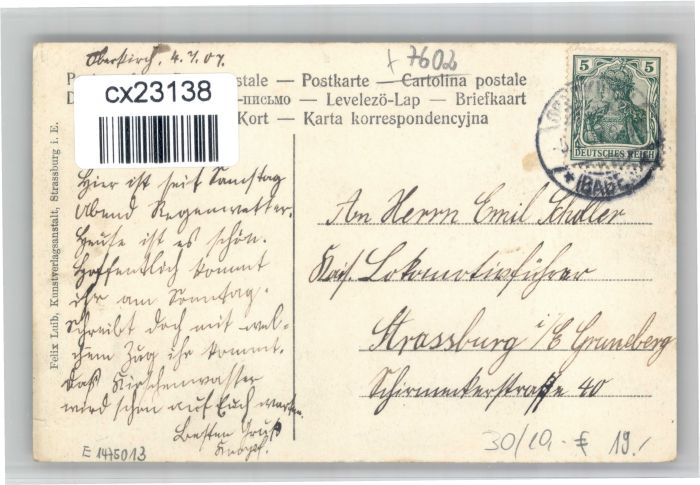 Oberkirch, 4.7.07.
+ 7602
Postkarte — Cartolina postale
-письмо — Levelezö-Lap — Briefkaart
Kort — Karta korrespondencyjna
cx23138
5 5
DEUTSCHES REICH
(BADEN)
Felix Luib, Kunstverlagsanstalt, Strassburg i. E.
Hier ist seit Samstag
Abend Regenwetter.
Heute ist es schön.
Hoffentlich kommt
ihr am Sonntag.
Schreibt doch mit wel-
chem Zug ihr kommt.
Das Kirschenwasser
wird schon auf Euch warten.
Besten Gruß
An Herrn Emil Scholler
Kais. Lokomotivführer
Strassburg i/E Gruneberg
Schirmeckerstraße 40
E 1475013
30/10,- € 19.-